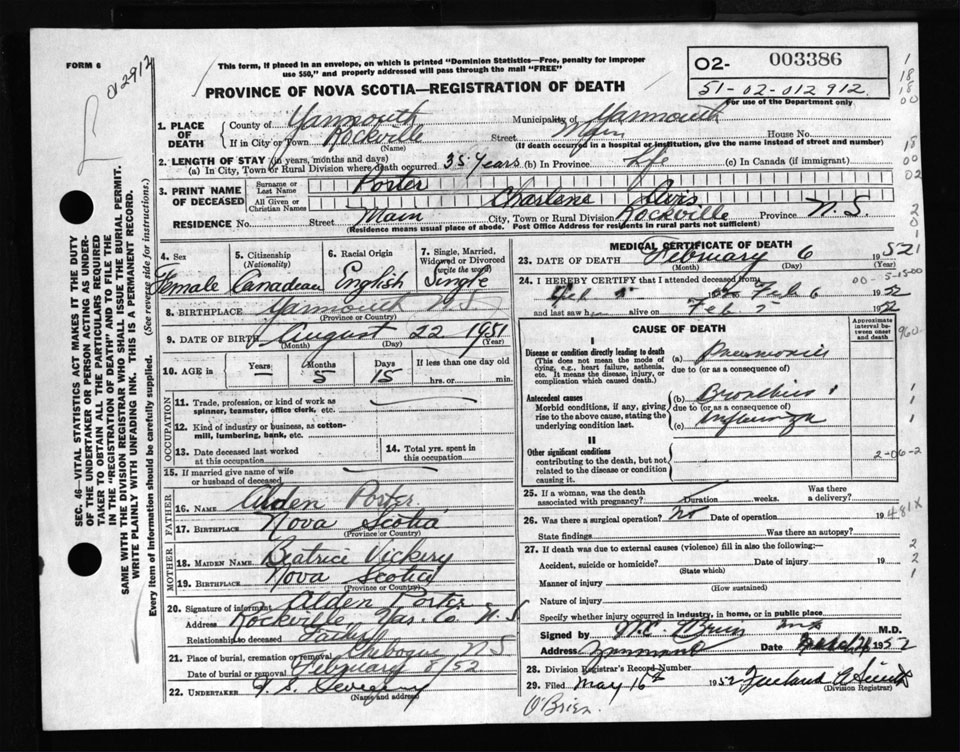 FORM 6
012912
This form, if placed in an envelope, on which is printed "Dominion Statistics—Free, penalty for improper
use $50," and properly addressed will pass through the mail "FREE"
PROVINCE OF NOVA SCOTIA—REGISTRATION OF DEATH
02- 003386
51-02-012912
For use of the Department only
1. PLACE OF DEATH
County of Yarmouth Municipality of Yarmouth
If in City or Town Rockville Street Main House No.
(Name) (If death occurred in a hospital or institution, give the name instead of street and number)
2. LENGTH OF STAY (in years, months and days)
(a) In City, Town or Rural Division where death occurred 35 Years (b) In Province Life (c) In Canada (if immigrant)
3. PRINT NAME OF DECEASED
Surname or Last Name Porter
All Given or Christian Names Charlene Avis
RESIDENCE No. Street Main City, Town or Rural Division Rockville Province N.S.
(Residence means usual place of abode. Post Office Address for residents in rural parts not sufficient)
4. Sex Female
5. Citizenship (Nationality) Canadian
6. Racial Origin English
7. Single, Married, Widowed or Divorced (write the word) Single
8. BIRTHPLACE Yarmouth N.S.
(Province or Country)
9. DATE OF BIRTH August 22 1951
(Month) (Day) (Year)
10. AGE in Years — Months 5 Days 15 If less than one day old
hrs. or min.
OCCUPATION
11. Trade, profession, or kind of work as spinner, teamster, office clerk, etc.
12. Kind of industry or business, as cotton-mill, lumbering, bank, etc.
13. Date deceased last worked at this occupation
14. Total yrs. spent in this occupation
15. If married give name of wife or husband of deceased
FATHER
16. NAME Alden Porter
17. BIRTHPLACE Nova Scotia
(Province or Country)
MOTHER
18. MAIDEN NAME Beatrice Vickery
19. BIRTHPLACE Nova Scotia
(Province or Country)
20. Signature of informant Alden Porter
Address Rockville Yar. Co. N.S.
Relationship to deceased Father
21. Place of burial, cremation or removal Chebogue N.S.
Date of burial or removal February 8/52
22. UNDERTAKER
(Name and address)
MEDICAL CERTIFICATE OF DEATH
23. DATE OF DEATH February 6 1952
(Month) (Day) (Year)
24. I HEREBY CERTIFY that I attended deceased from
Feb 5 Feb 6 1952
and last saw h alive on Feb 1952
CAUSE OF DEATH
Approximate interval between onset and death
I
Disease or condition directly leading to death (a) Pneumonia
(This does not mean the mode of dying, e.g., heart failure, asthenia, etc. It means the disease, injury, or complication which caused death.)
due to (or as a consequence of)
Antecedent causes (b)
Morbid conditions, if any, giving rise to the above cause, stating the underlying condition last.
due to (or as a consequence of)
(c) Influenza
II
Other significant conditions contributing to the death, but not related to the disease or condition causing it.
25. If a woman, was the death associated with pregnancy? Duration weeks. Was there a delivery?
26. Was there a surgical operation? no Date of operation 19
State findings Was there an autopsy?
481X
27. If death was due to external causes (violence) fill in also the following:—
Accident, suicide or homicide? Date of injury 19
(State which)
Manner of injury
(How sustained)
Nature of injury
Specify whether injury occurred in industry, in home, or in public place
Signed by M.D.
Address Yarmouth Date 1952
28. Division Registrar's Record Number
29. Filed May 16th 1952
(Division Registrar)
O'Brien.
SEC. 46—VITAL STATISTICS ACT MAKES IT THE DUTY
OF THE UNDERTAKER OR PERSON ACTING AS UNDER-
TAKER TO OBTAIN ALL THE PARTICULARS REQUIRED
IN THE "REGISTRATION OF DEATH" AND TO FILE THE
SAME WITH THE DIVISION REGISTRAR WHO SHALL ISSUE THE BURIAL PERMIT.
WRITE PLAINLY WITH UNFADING INK. THIS IS A PERMANENT RECORD.
Every item of information should be carefully supplied. (See reverse side for instructions.)